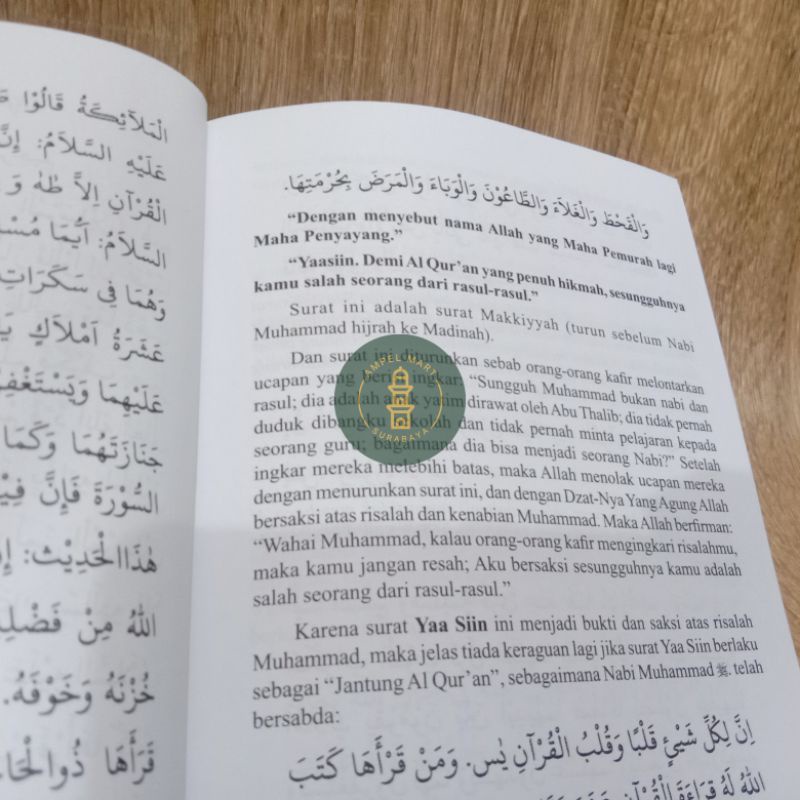 الْمَلاَئِكَةُ قَالُوْا
عَلَيْهِ السَّلاَمُ: إِنَّ
الْقُرْآنِ إِلاَّ طٰهٰ وَ
السَّلاَمُ: أَيُّمَا
وَهُمَا فِي سَكَرَاتِ
عَشَرَةُ اَمْلاَكٍ
عَلَيْهِمَا
جَنَازَتَهُمَا وَكَمَا
السُّوْرَةَ فَإِنَّ
هٰذَا الْحَدِيْثَ:
اللهُ مِنْ
حُزْنَهُ وَخَوْفَهُ.
قَرَأَهَا
وَالْقَحْطَ وَالْغَلاَءَ وَالطَّاعُوْنَ وَالْوَبَاءَ وَالْمَرَضَ بِحُرْمَتِهَا.
“Dengan menyebut nama Allah yang Maha Pemurah lagi
Maha Penyayang.”
“Yaasiin. Demi Al Qur’an yang penuh hikmah, sesungguhnya
kamu salah seorang dari rasul-rasul.”
Surat ini adalah surat Makkiyyah (turun sebelum Nabi
Muhammad hijrah ke Madinah).
Dan surat ini diturunkan sebab orang-orang kafir melontarkan
ucapan yang berisi ingkar: “Sungguh Muhammad bukan nabi dan
rasul; dia adalah anak yatim dirawat oleh Abu Thalib; dia tidak pernah
duduk dibangku sekolah dan tidak pernah minta pelajaran kepada
seorang guru; bagaimana dia bisa menjadi seorang Nabi?” Setelah
ingkar mereka melebihi batas, maka Allah menolak ucapan mereka
dengan menurunkan surat ini, dan dengan Dzat-Nya Yang Agung Allah
bersaksi atas risalah dan kenabian Muhammad. Maka Allah berfirman:
“Wahai Muhammad, kalau orang-orang kafir mengingkari risalahmu,
maka kamu jangan resah; Aku bersaksi sesungguhnya kamu adalah
salah seorang dari rasul-rasul.”
Karena surat Yaa Siin ini menjadi bukti dan saksi atas risalah
Muhammad, maka jelas tiada keraguan lagi jika surat Yaa Siin berlaku
sebagai “Jantung Al Qur’an”, sebagaimana Nabi Muhammad ﷺ. telah
bersabda:
اِنَّ لِكُلِّ شَيْئٍ قَلْبًا وَقُلْبُ الْقُرْآنِ يٰس. وَمَنْ قَرْأَهَا كَتَبَ
اللهُ لَهُ قِرَاءَةَ الْقُرْآنِ
AMPEL MART
SURABAYA